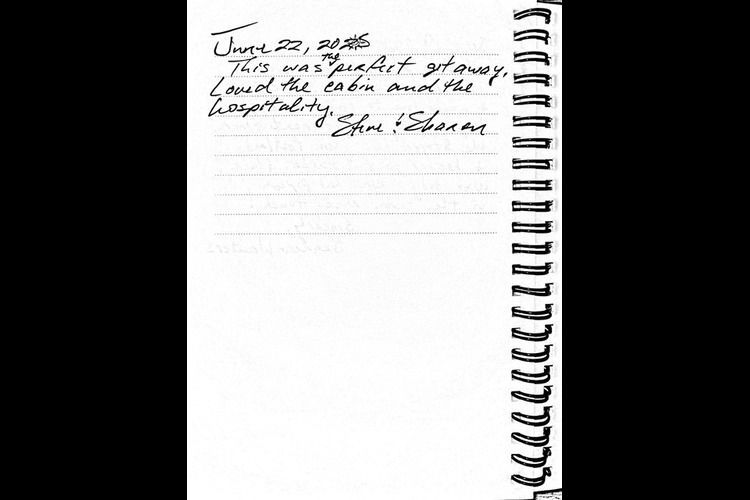 June 22, 2025
This was the perfect getaway.
Loved the cabin and the
hospitality.
Steve & Sharon